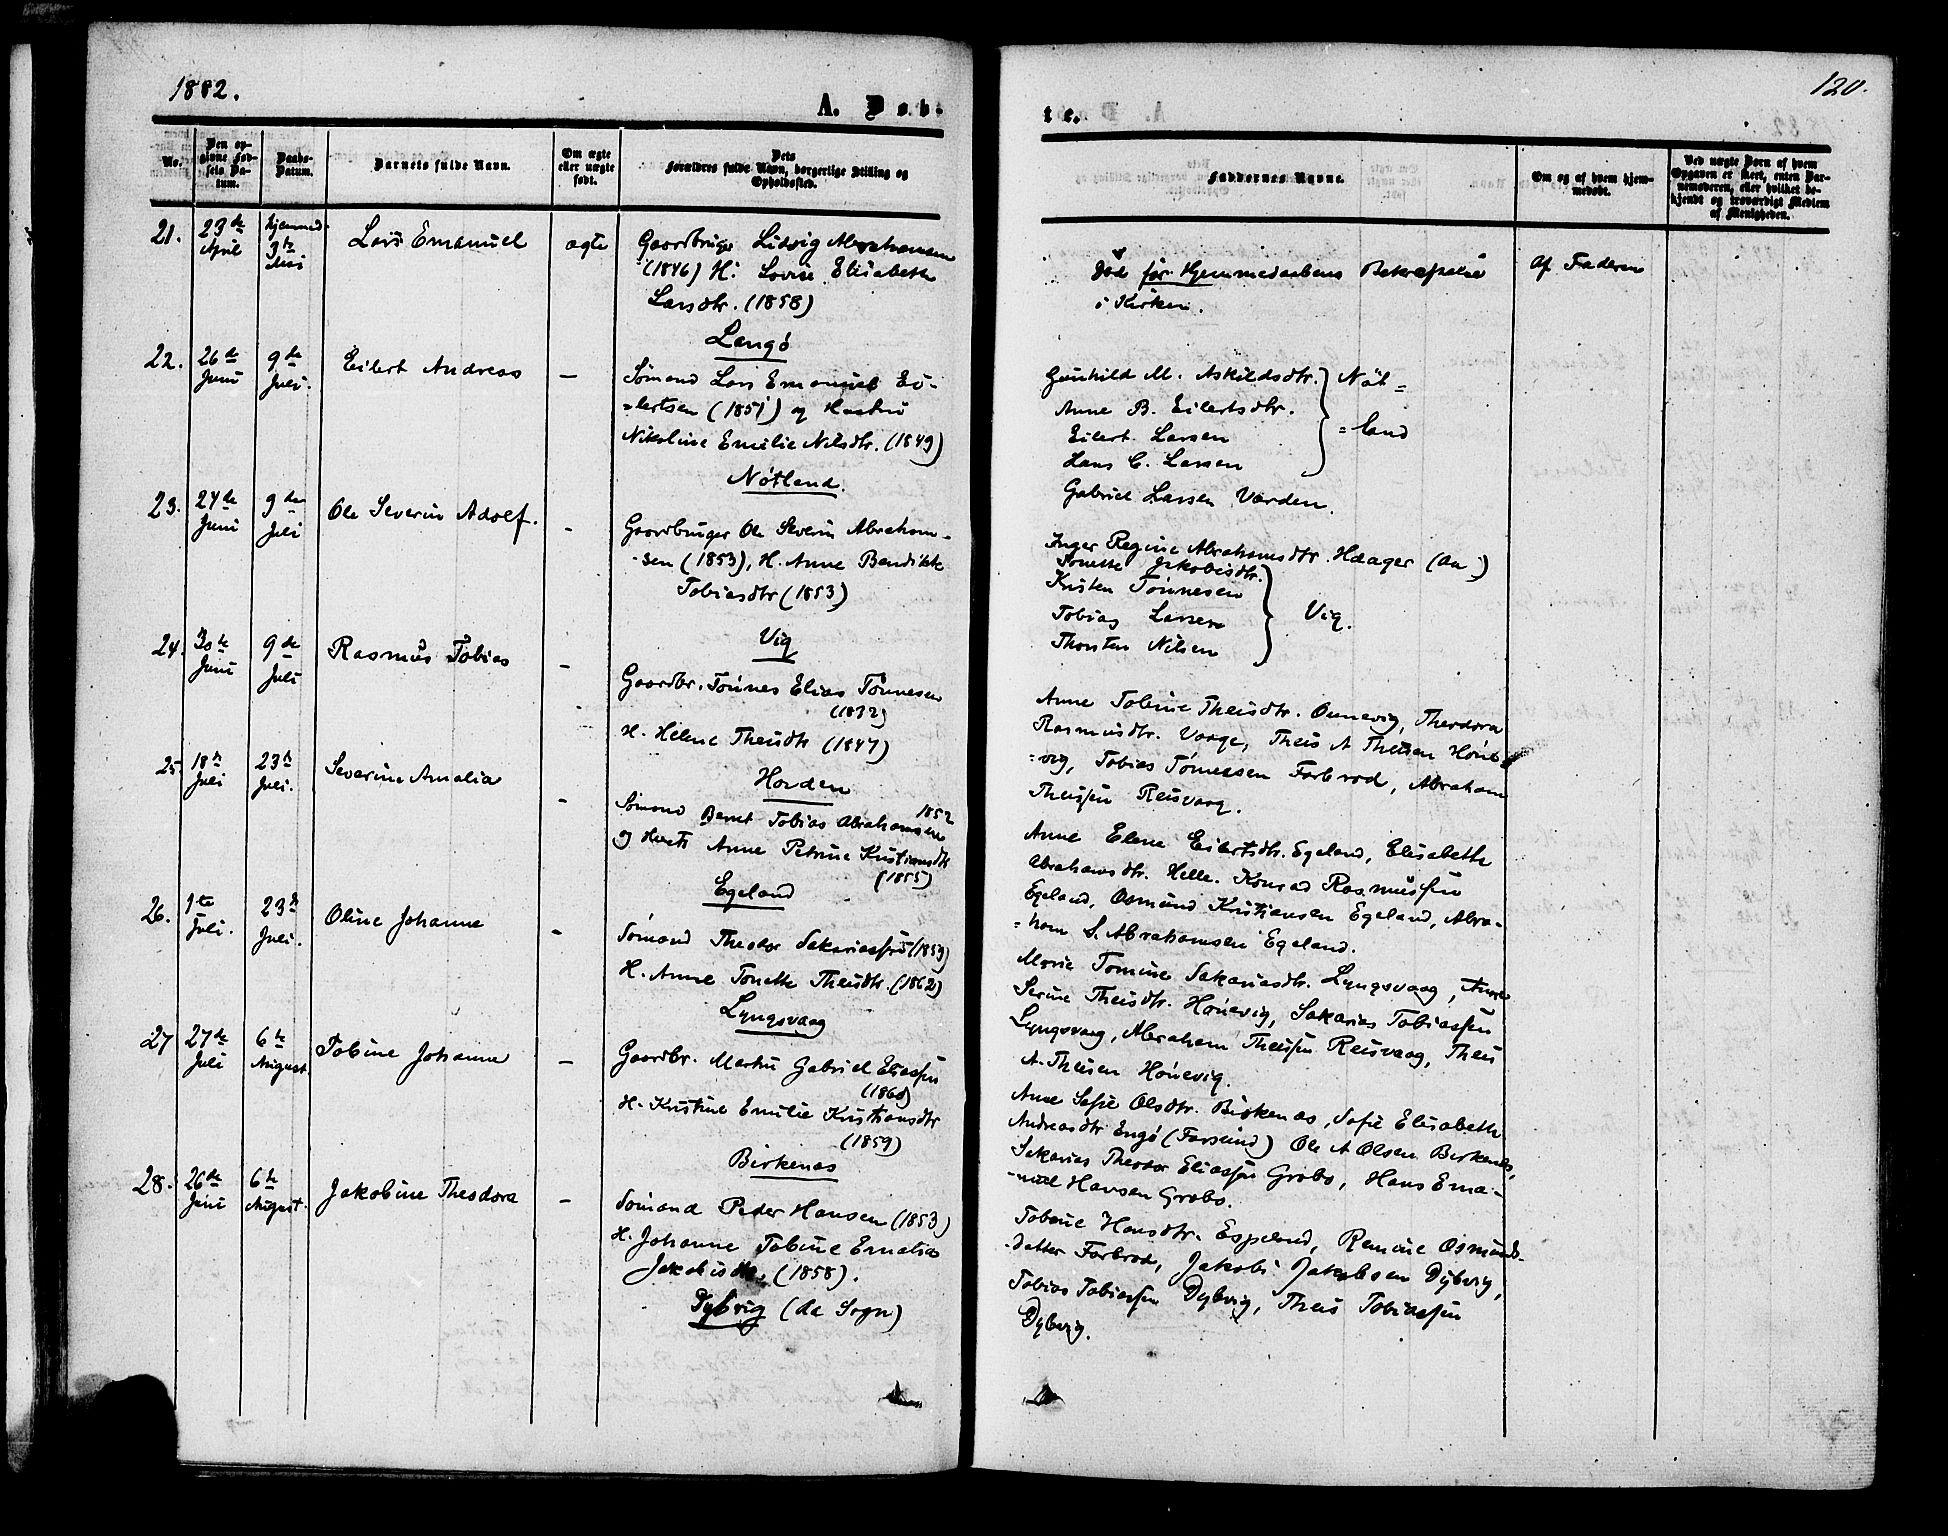 1882.
A. Døb-
No.
Den op-
givne Fød-
sels Da-
tum.
Daabs-
Datum.
Barnets fulde Navn.
Om ægte
eller uægte
født.
Dets
Forældres fulde Navn, borgerlige Stilling og
Opholdssted.
21.
23de
April
hjemmed.
3te
Mai
Lars Emanuel
ægte
Gaardbruger Ludvig Abrahamsen
(1846) H: Lovise Elisabeth
Larsdtr. (1858)
Langø
22.
26de
Juni
9de
Juli.
Eilert Andreas
—
Sømand Lars Emanuel Ei-
=lertsen (1851) og Hustru
Nikoline Emilie Nilsdtr. (1849)
Nøtland.
23.
24de
Juni
9de
Juli
Ole Severin Adolf.
—
Gaardbruger Ole Severin Abraham-
-sen (1853), H. Anne Bendikte
Tobiasdtr (1853)
Vig
24.
30te
Juni
9de
Juli
Rasmus Tobias
—
Gaardbr. Tønnes Elias Tønnesen
(1832)
H. Helene Theisdtr (1847)
Horden
25.
18de
Juli
23de
Juli.
Severine Amalia
—
Sømand Bernt Tobias Abrahamsen
1852
og Hustr Anne Petrine Kristiansdtr
(1855)
Egeland
26.
1ste
Juli.
23de
Juli.
Oline Johanne
—
Sømand Theodor Sakariassen (1859)
H. Anne Tonette Theisdtr. (1862)
Lyngsvaag
27
27de
Juli
6te
August.
Tobine Johanne
—
Gaardbr. Martin Gabriel Eliassen
(1860)
H. Kristine Emilie Kristiansdtr
(1859)
Birkenæs
28.
26de
Juni
6te
August.
Jakobine Theodora
—
Sømand Peder Hansen (1853)
H. Johanne Tobine Emalia
Jakobsdtr, (1858).
Dybvig (da Sogn)
120.
te.
Faddernes Navne.
Om og af hvem hjem-
medøbt.
Ved uægte Børn af hvem
Opgaven er skeet, enten Bar-
nemoderen, eller hvilket be-
kjendt og troværdigt Medlem
af Menigheden.
Død før Hjemmedaabens Bekræftelse
i Kirken.
Af Faderen
Gunhild M. Askildsdtr. Nøt=
Anne B. Eilertsdtr.
Eilert Larsen =land
Hans C. Larsen
Gabriel Larsen Varden.
Inger Regine Abrahamsdtr. Haager (An )
Tonette Jakobisdtr.
Kristen Tønnesen
Tobias Larsen Vig.
Thorsten Nilsen
Anne Tobine Theisdtr. Ounevig, Theodora
Rasmusdtr. Vaage, Theis A Theisen Hóne
=vig, Tobias Tønnessen Farbrod, Abraham
Theissen Reisvaag.
Anne Elene Eilertsdtr. Egeland, Elisabeth
Abrahamsdtr. Helle. Konrad Rasmussen
Egeland, Osmund Kristiansen Egeland, Abra-
=ham S. Abrahamsen Egeland.
Marie Tomine Sakariasdtr. Lyngsvaag, Anne
Serine Theisdtr. Hónevig, Sakarias Tobiassen
Lyngsvaag, Abraham Theissen Reisvaag, Theis
A. Theisen Hónevig.
Anne Sofie Olsdtr. Birkenæs, Sofie Elisabeth
Andreasdtr Engø (Farsund) Ole A Olsen Birkenæs,
Sakarias Theodor Eliassen Grobs, Hans Ema-
-nuel Hansen Grobs.
Tobine Hansdtr. Espeland, Remine Osmunds-
-datter Farbrod, Jakob Jakobsen Dybvig,
Tobias Tobiassen Dybvig, Theis Tobiassen
Dybvig.